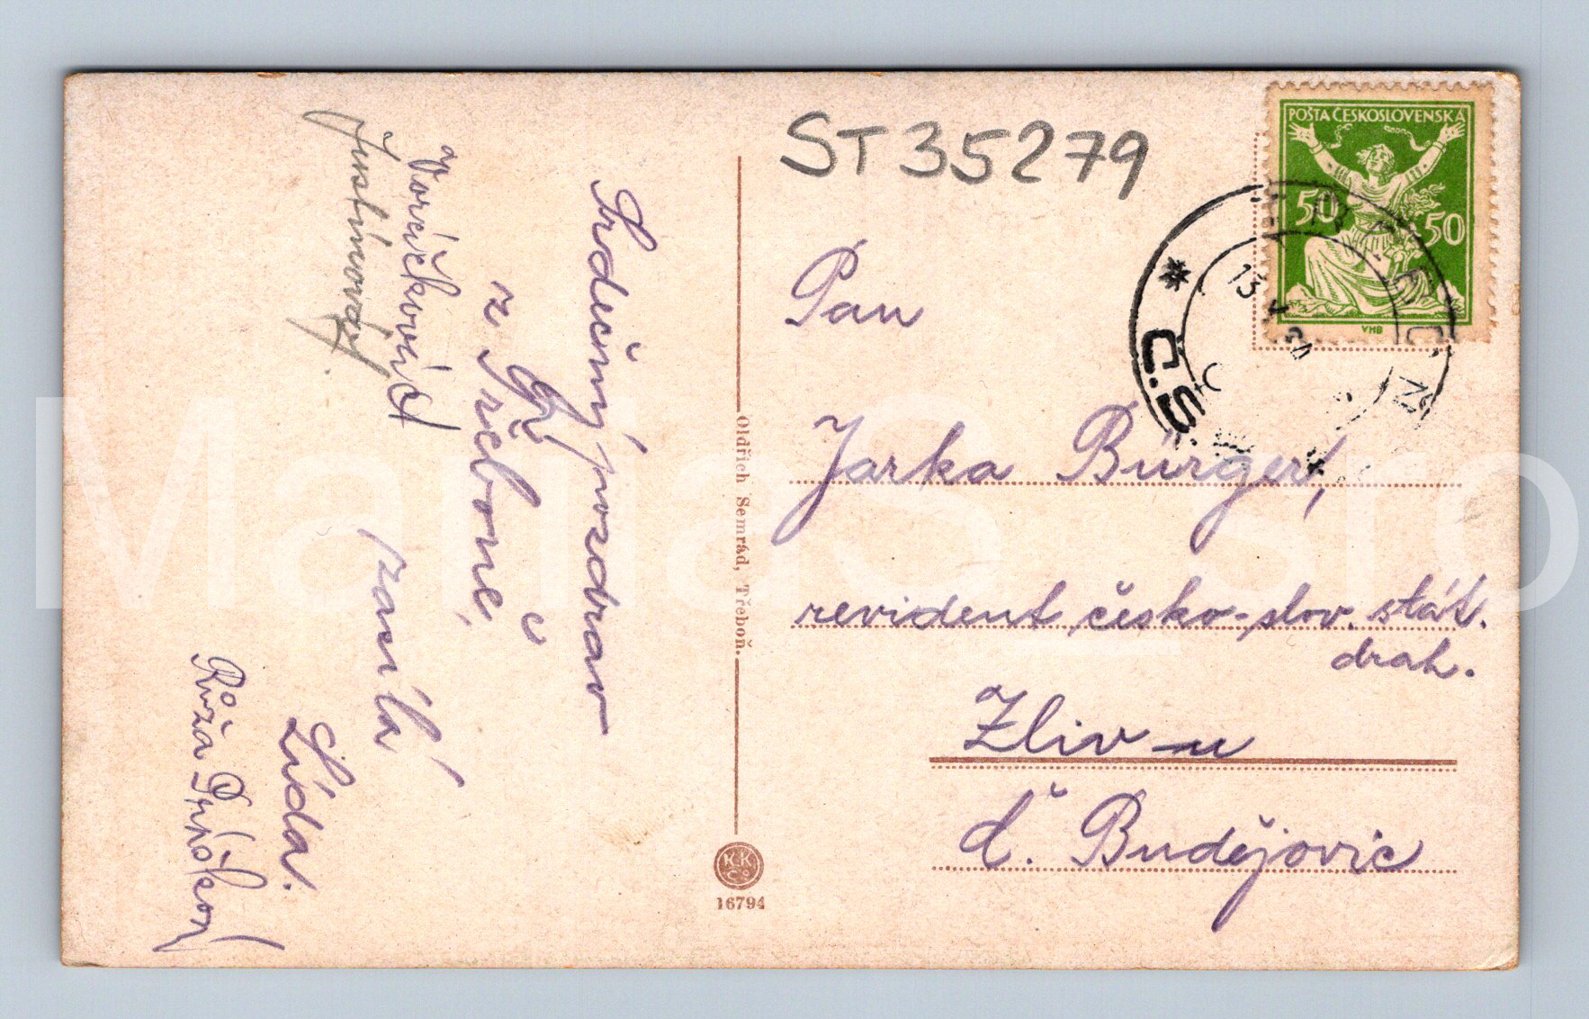 ST35279
POŠTA ČESKOSLOVENSKÁ
50 50
VHB
13 V
Č.S.
Pan
Jarka Bürger,
revident česko-slov. stát.
drah.
Zliv u
Č. Budějovic
Oldřich Semrád, Třeboň.
K K
Cº
16794
Srdečný pozdrav
z Třeboně,
zasílá
Lída.
Růža
Voráčková
Justinová
ManiaS_sro